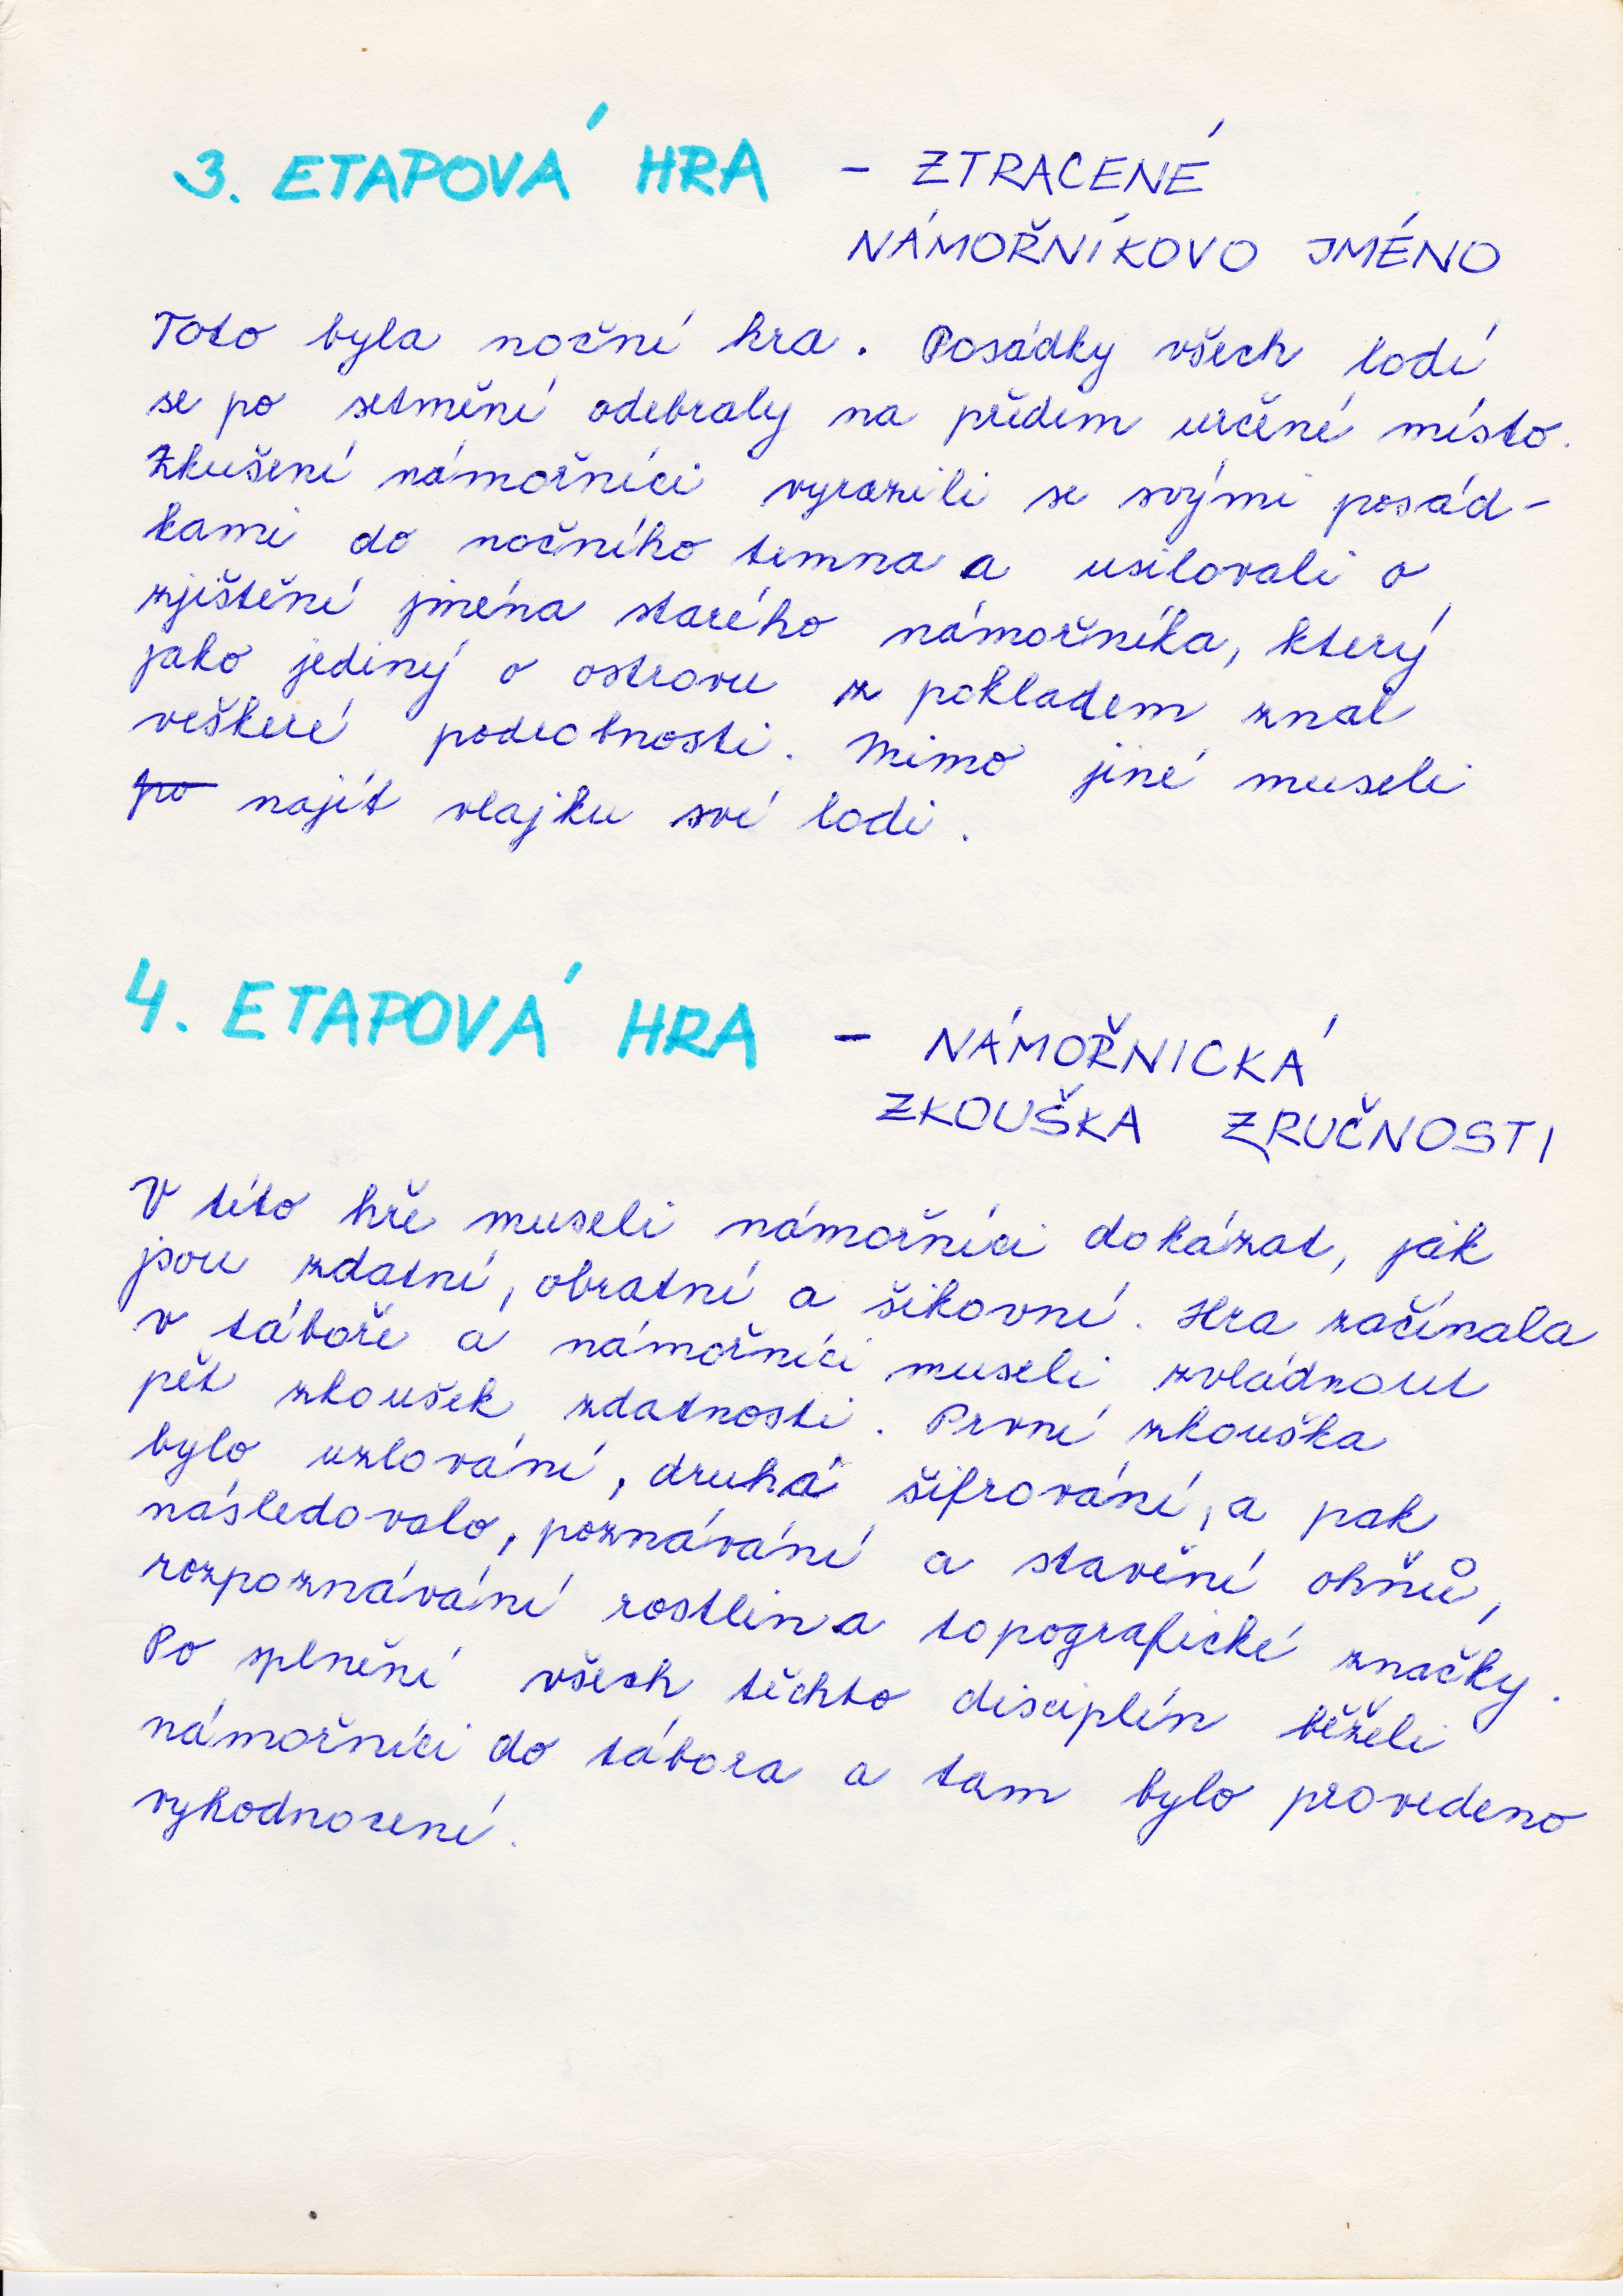 3. ETAPOVÁ HRA - ZTRACENÉ
NÁMOŘNÍKOVO JMÉNO
Toto byla noční hra. Posádky všech lodí
se po setmění odebraly na předem určené místo.
Zkušení námořníci vyrazili se svými posád-
kami do nočního temna a usilovali o
zjištění jména starého námořníka, který
jako jediný o ostrovu z pokladem znal
veškeré podrobnosti. Mimo jiné museli
po najít vlajku své lodi.
4. ETAPOVÁ HRA - NÁMOŘNICKÁ
ZKOUŠKA ZRUČNOSTI
V této hře museli námořníci dokázat, jak
jsou zdatní, obratní a šikovní. Hra začínala
v táboře a námořníci museli zvládnout
pět zkoušek zdatnosti. První zkouška
bylo uzlování, druhá šifrování, a pak
následovalo, poznávání a stavění ohňů,
rozpoznávání rostlin a topografické značky.
Po splnění všech těchto disciplín běželi
námořníci do tábora a tam bylo provedeno
vyhodnocení.